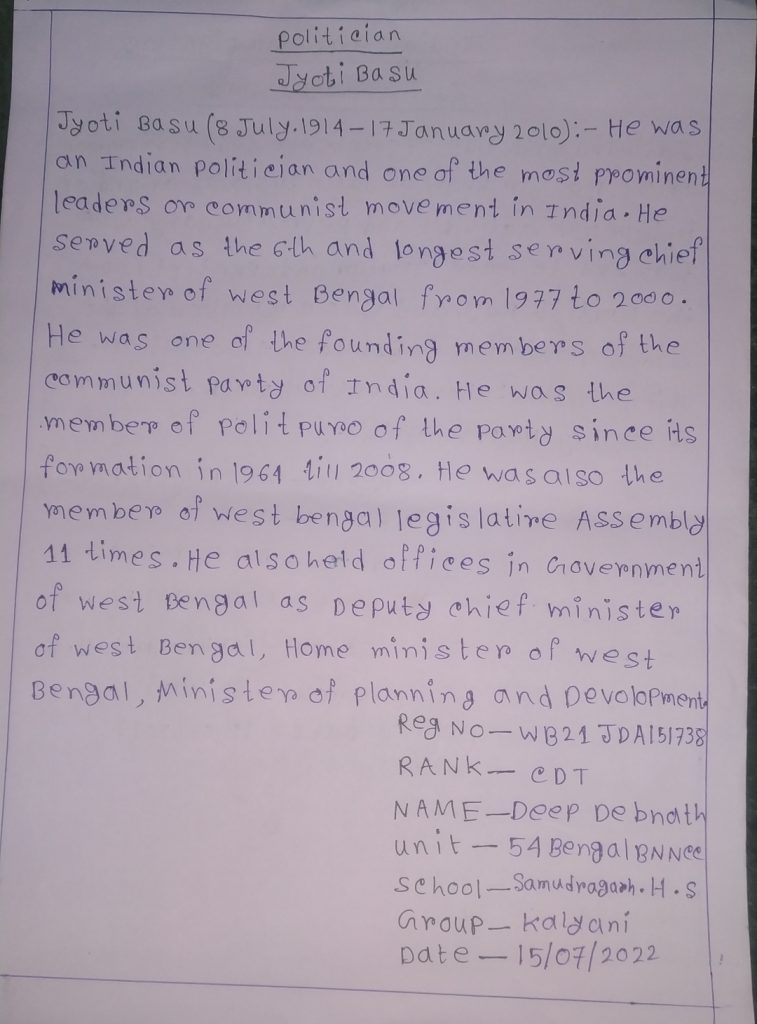 politician
Jyoti Basu
Jyoti Basu (8 July.1914 – 17 January 2010):- He was
an Indian politician and one of the most prominent
leaders or communist movement in India. He
served as the 6th and longest serving chief
minister of west Bengal from 1977 to 2000.
He was one of the founding members of the
communist party of India. He was the
member of polit puro of the party since its
formation in 1964 till 2008. He was also the
member of west bengal legislative Assembly
11 times. He also held offices in Government
of west Bengal as Deputy chief minister
of west Bengal, Home minister of west
Bengal, Minister of planning and Devolopment.
Reg NO — WB21 JDA151738
RANK — CDT
NAME — Deep Debnath
unit — 54 Bengal BN NCC
School — Samudragarh. H.S
Group — Kalyani
Date — 15/07/2022